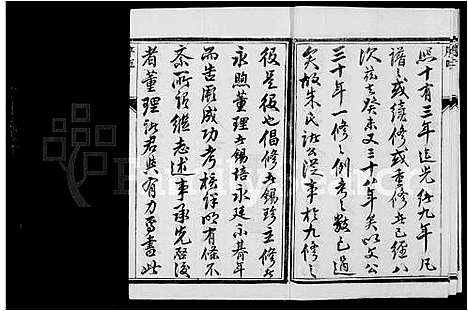 熙十有三年迄光緒九年凡
譜之或續修或重修者已經八
次茲至癸未又三十八年矣以文公
三十年一修之例考之數已過
矣故朱氏諸公從事於九修之
役是役也倡修者錫珍主修者
永煦董理者錫培永廷不朞年
而告厥成功考核詳明有條不
紊所謂繼志述事承先啓後
者董理諸君與有力焉書此
FamilySearch